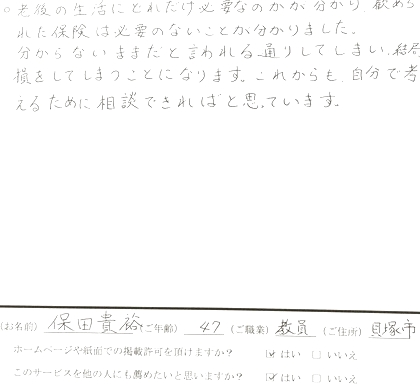 ○老後の生活にどれだけ必要なのかが分かり、歓められた保険は必要のないことが分かりました。
分からないままだと言われる通りしてしまい、結局
損をしてしまうことになります。これからも、自分で考
えるために相談できればと思っています。
(お名前) 保田貴裕 (ご年齢) 47 (ご職業) 教員 (ご住所) 貝塚市
ホームページや紙面での掲載許可を頂けますか? ☑はい □いいえ
このサービスを他の人にも薦めたいと思いますか? ☑はい □いいえ